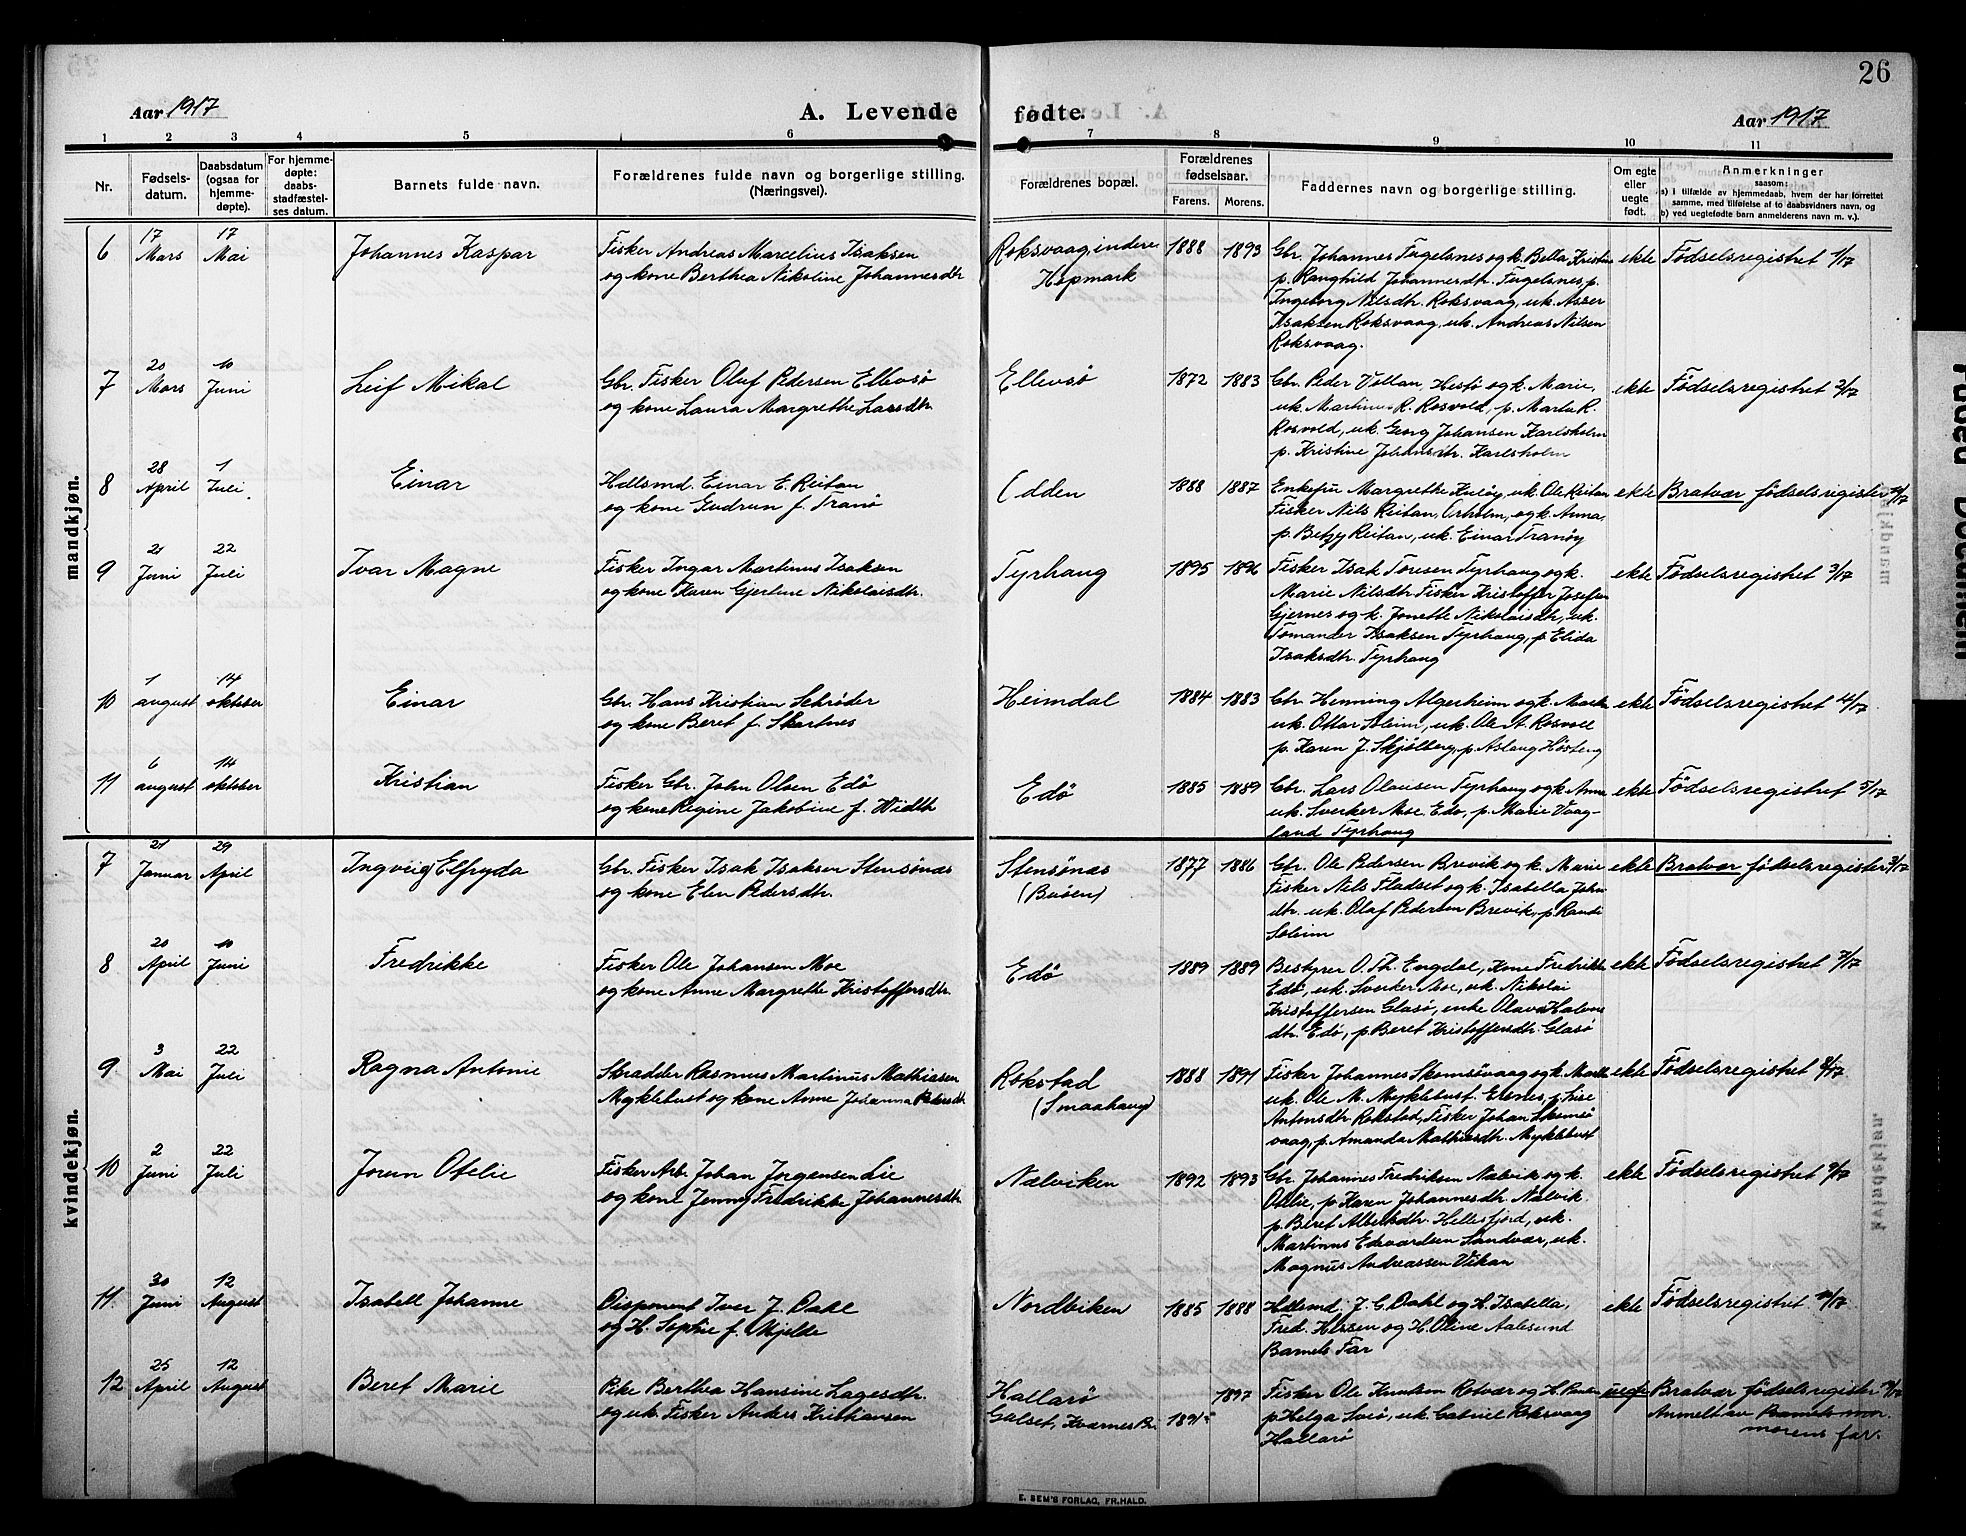 26
Aar 1917
A. Levende fødte.
Aar 1917
1 2 3 4 5 6 7 8 9 10 11
Nr.
Fødselsdatum.
Daabsdatum (ogsaa for hjemmedøpte).
For hjemmedøpte: daabsstadfæstelses datum.
Barnets fulde navn.
Forældrenes fulde navn og borgerlige stilling. (Næringsvei).
Forældrenes bopæl.
Forældrenes fødselsaar.
Farens. Morens.
Faddernes navn og borgerlige stilling.
Om egte eller uegte født.
Anmerkninger
saasom:
a) i tilfælde av hjemmedaab, hvem der har forrettet samme, med tilføielse af to daabsvidners navn, og
b) ved uegtefødte barn anmelderens navn m. v.).
mandkjøn.
6 17 Mars 17 Mai Johannes Kaspar
Fisker Andreas Marcelius Isaksen
og kone Berthea Nikoline Johannesdtr
Roksvaag, indere
Hopmark
1888 1893
Gbr. Johannes Fugelsnes og k. Bella Kristine
p. Ranghild Johannesdtr. Fugelsnes, p.
Ingeborg Nilsdtr. Roksvaag, uk. Asser
Isaksen Roksvaag, uk. Andreas Nilsen
Roksvaag.
ekte Fødselsregistret 1/17
7 20 Mars 10 Juni Leif Mikal
Gbr. Fisker Oluf Pedersen Ellevsø
og kone Laura Margrethe Larsdtr.
Ellevsø
1872 1883
Gbr. Peder Vollan, Hestø og k. Marie,
uk. Martinus R. Rosvold, p. Marta R.
Rosvold, uk. Georg Johansen Karlsholm
p. Kristine Johansdtr. Karlsholm
ekte Fødselsregistret 2/17
8 28 April 1 Juli. Einar
Hdlsmd. Einar E. Reitan
og kone Gudrun f. Tranø
Odden
1888 1887
Enkefru Margrethe Kuløy, uk. Ole Reitan
Fisker Nils Reitan, Ørholm, og k. Anna,
p. Betzy Reitan, uk. Einar Tranøy
ekte Bratvær fødselsregister
9 21 Juni 22 Juli Ivar Magne
Fisker Ingar Martinus Isaksen
og kone Karen Gjertine Nikolaisdtr.
Tyrhaug
1895 1896
Fisker Isak Toresen Tyrhaug og k.
Marie Nilsdtr. Fisker Kristoffer Josefsen
Gjernes og k. Jonette Nikolaisdtr, uk.
Tomander Isaksen Tyrhaug, p. Elida
Isaksdtr. Tyrhaug
ekte Fødselsregistret 3/17
10 1 august 14 oktober Einar
Gbr. Hans Kristian Schrøder
og kone Beret f. Skartnes
Heimdal
1884 1883
Gbr. Henning Algerheim og k.
uk. Ottar Soleim, uk. Ole A. Rosvoll
p. Karen J. Skjølberg, p. Aslaug
ekte Fødselsregistret 4/17
11 6 august 14 oktober Kristian
Fisker Gbr. John Olsen Edø
og kone Regine Jakobine f. Width
Edø
1885 1889
Gbr. Lars Olausen Tyrhaug og k. Anne
uk. Sverker Moe Edø, p. Marie Vaag-
land Tyrhaug
ekte Fødselsregistret 5/17
kvindekjøn.
7 21 Januar 29 April Ingveig Elfryda
Gbr. Fisker Isak Isaksen Stensønæs
og kone Elen Pedersdtr.
Stensønæs
(Buøen)
1877 1886
Gbr. Ole Pedersen Brevik og k. Marie
Fisker Nils Fladset og k. Isabella John
dtr. uk. Olaf Pedersen Brevik, p. Randi
Soleim
ekte Bratvær fødselsregister 3/17
8 20 April 10 Juni Fredrikke
Fisker Ole Johansen Moe
og kone Anne Margrethe Kristoffersdtr.
Edø
1889 1889
Bestyrer O. Th. Engdal, Kone Fredrikke
Edø, uk. Sverker Moe, uk. Nikolai
Kristoffersen Glasø, enke Olava Halvor
dtr. Edø, p. Beret Kristoffersdtr. Glasø
ekte Fødselsregistret 7/17
9 3 Mai 22 Juli Ragna Antonie
Skradder Rasmus Martinus Mathiasen
Myklebust og kone Anne Johanna Pedersdtr
Rokstad
(Smaahaug)
1888 1891
Fisker Johannes Skomsøvaag og k. Marie
uk. Ole M. Myklebust. Eidnes, p. Lise
Antonsdtr Rokstad, Fisker Johan Skomsø
vaag, p. Amanda Mathiasdtr. Myklebust
ekte Fødselsregistret 8/17
10 2 Juni 22 Juli Jorun Otelie
Fisker Arb. Johan Jørgensen Lie
og kone Jenny Fredrikke Johannesdtr.
Nælviken
1892 1893
Gbr Johannes Fredriksen Nælvik og k.
Otelie, p. Karen Johannesdtr. Nælvik.
p. Beret Albertsdtr. Hellesfjord, uk.
Martinus Edvardsen Sandvær, uk.
Magnus Andreassen Vikan
ekte Fødselsregistret 9/17
11. 30 Juni 12 August Isabell Johanne
Disponent Iver J. Dahl
og H. Sophie f. Mjelde
Nordviken
1885 1888
Hdlsmd. J. G. Dahl og H. Isabella,
Fred. Hessen og H. Oline Aalesund
Barnets Far
ekte Fødselsregistret 10/17
12 25 April 12 August Beret Marie
Pike Berthea Hansine Lagesdtr.
og uk. Fisker Anders Kristiansen
Hallarø
Galset, Kvarnes Pr.
1891 1897
Fisker Ole Knutsen Rotvær og H.
p. Helga Sveø, uk. Gabriel Roksvaag
Hallarø
uegte Bratvær fødselsregister
Anmelt av Barnets mor.
morens far.
E. SEM'S FORLAG, FR.HALD.